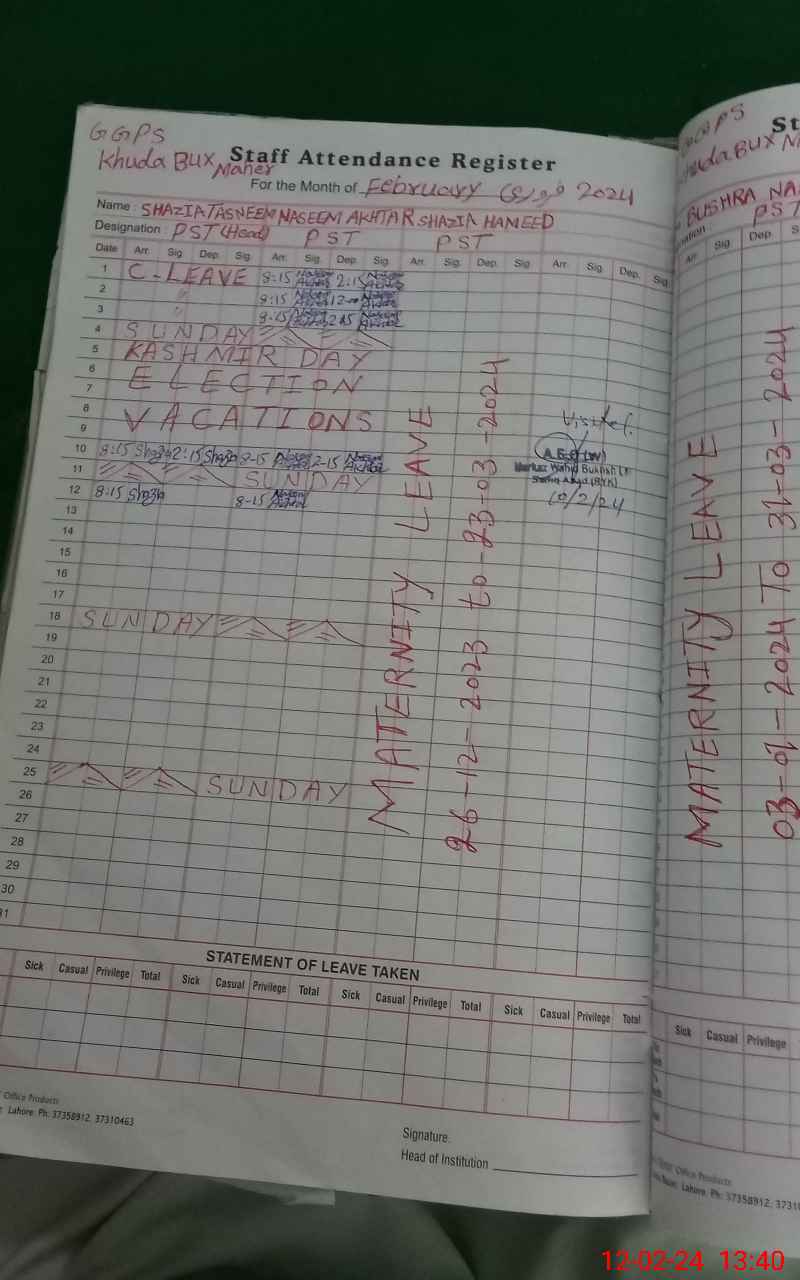 GGPS
Khuda BUX Maher
Staff Attendance Register
For the Month of February فروری 2024
Name : SHAZIA TASNEEM NASEEM AKHTAR SHAZIA HAMEED
Designation : PST (Head) PST PST
Date Arr. Sig. Dep. Sig. Arr. Sig. Dep. Sig. Arr. Sig. Dep. Sig. Arr. Sig. Dep. Sig.
1 C-LEAVE 8:15 Naseem Akhtar 2:15 Naseem Akhtar
2 " 8:15 Naseem Akhtar 12- Naseem Akhtar
3 " 8-15 Naseem Akhtar Naseem Akhtar
4 SUNDAY
5 KASHMIR DAY
6 ELECTION
7
8 VACATIONS
9
10 8:15 Shazia 2:15 Shazia 8-15 Naseem Akhtar 2-15 Naseem Akhtar
11 SUNDAY
12 8:15 Shazia 8-15 Naseem Akhtar
13
14
15
16
17
18 SUNDAY
19
20
21
22
23
24
25 SUNDAY
26
27
28
29
30
31
MATERNITY LEAVE
26-12-2023 to 23-03-2024
Visited.
A.E.O (W)
Markaz Wahid Bukhsh
(R.Y.K)
10/2/24
STATEMENT OF LEAVE TAKEN
Sick Casual Privilege Total Sick Casual Privilege Total Sick Casual Privilege Total Sick Casual Privilege Total
Office Products
Lahore. Ph: 37358912, 37310463
Signature.
Head of Institution
GGPS
Khuda BUX
St
BUSHRA NA
PST
Arr. Sig. Dep. S
MATERNITY LEAVE
03-01-2024 To 31-03-2024
Sick Casual Privilege
Office Products
Lahore. Ph: 37358912, 3731
12-02-24 13:40